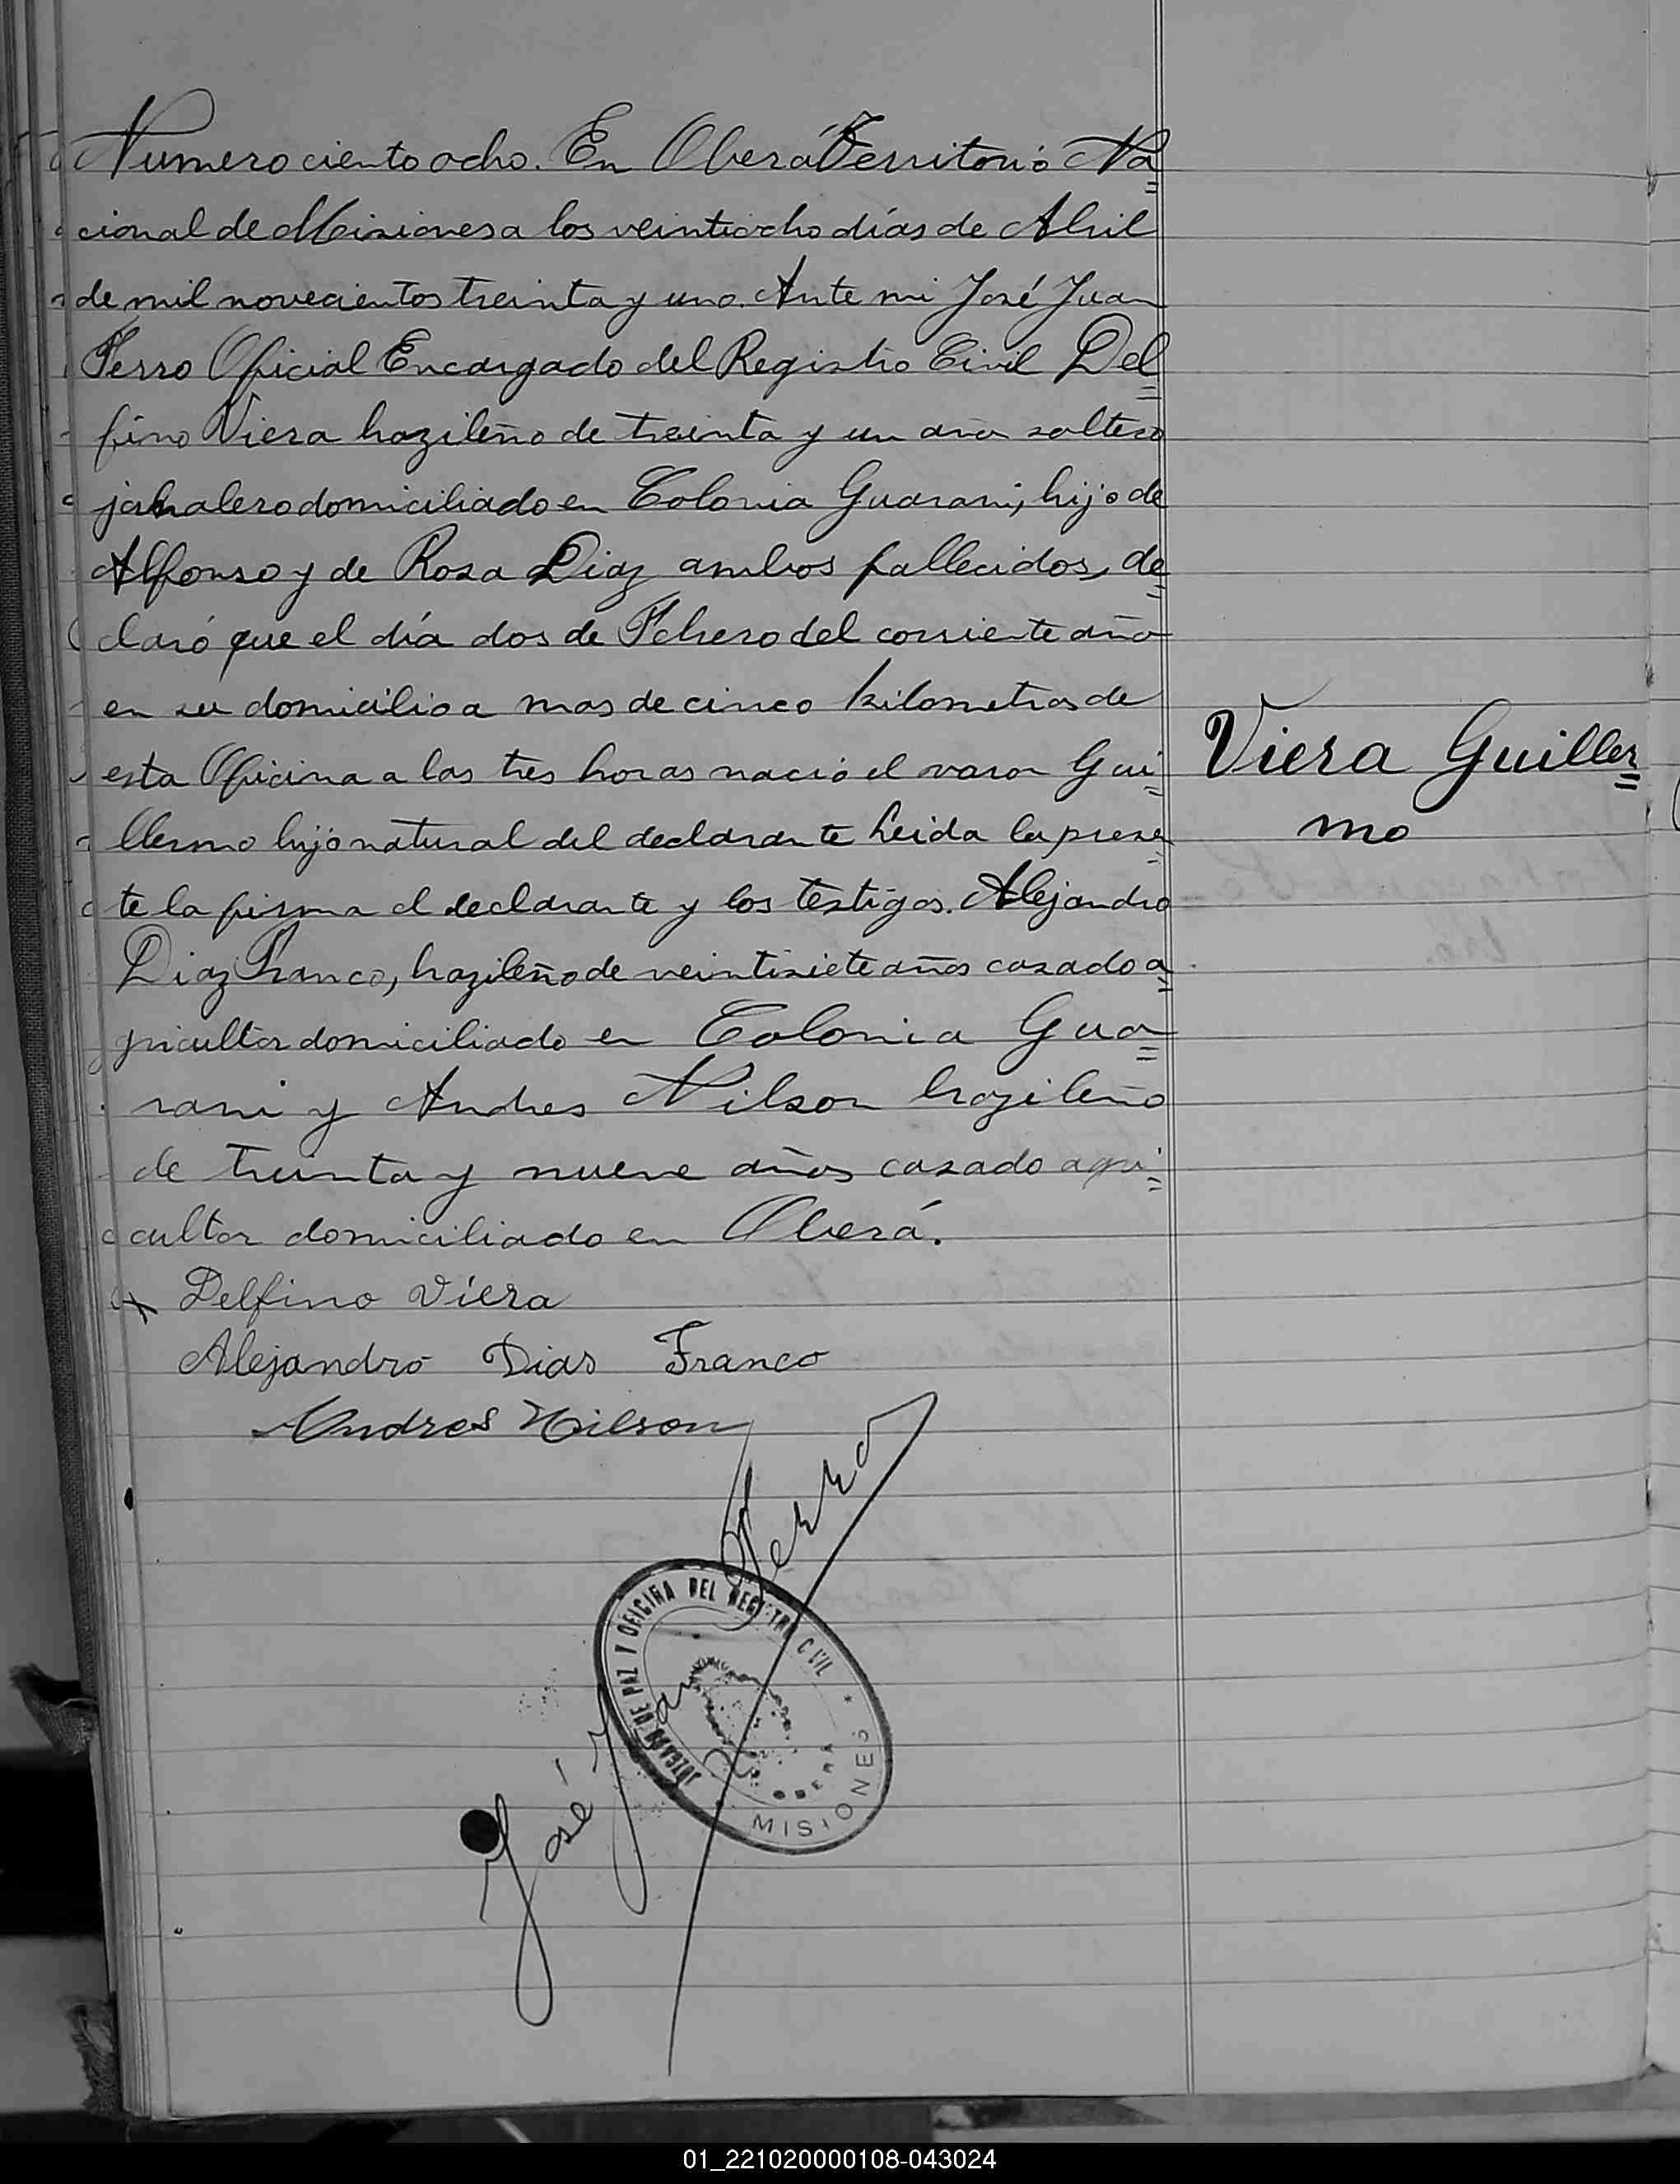 Numero ciento ocho. En Oberá Territorio Na=
cional de Misiones a los veintiocho días de Abril
de mil novecientos treinta y uno. Ante mi José Juan
Ferro Oficial Encargado del Registro Civil Del=
fino Viera brazileño de treinta y un años soltero
jornalero domiciliado en Colonia Guarani, hijo de
Alfonso y de Rosa Diaz ambos fallecidos, de=
claró que el día dos de Febrero del corriente año
en su domicilio a mas de cinco kilometros de
esta Oficina a las tres horas nació el varon Gui=
Viera Guiller=
mo
llermo hijo natural del declarante Leida la presen=
te la firma el declarante y los testigos. Alejandro
Diaz Franco, brazileño de veintisiete años casado a=
gricultor domiciliado en Colonia Gua=
rani y Andres Nilson brazileño
de treinta y nueve años casado agri=
cultor domiciliado en Oberá.
Delfino Viera
Alejandro Dias Franco
Andres Nilson
José Juan Ferro
JUZGADO DE PAZ Y OFICINA DEL REGISTRO CIVIL
OBERA
MISIONES
01_221020000108-043024